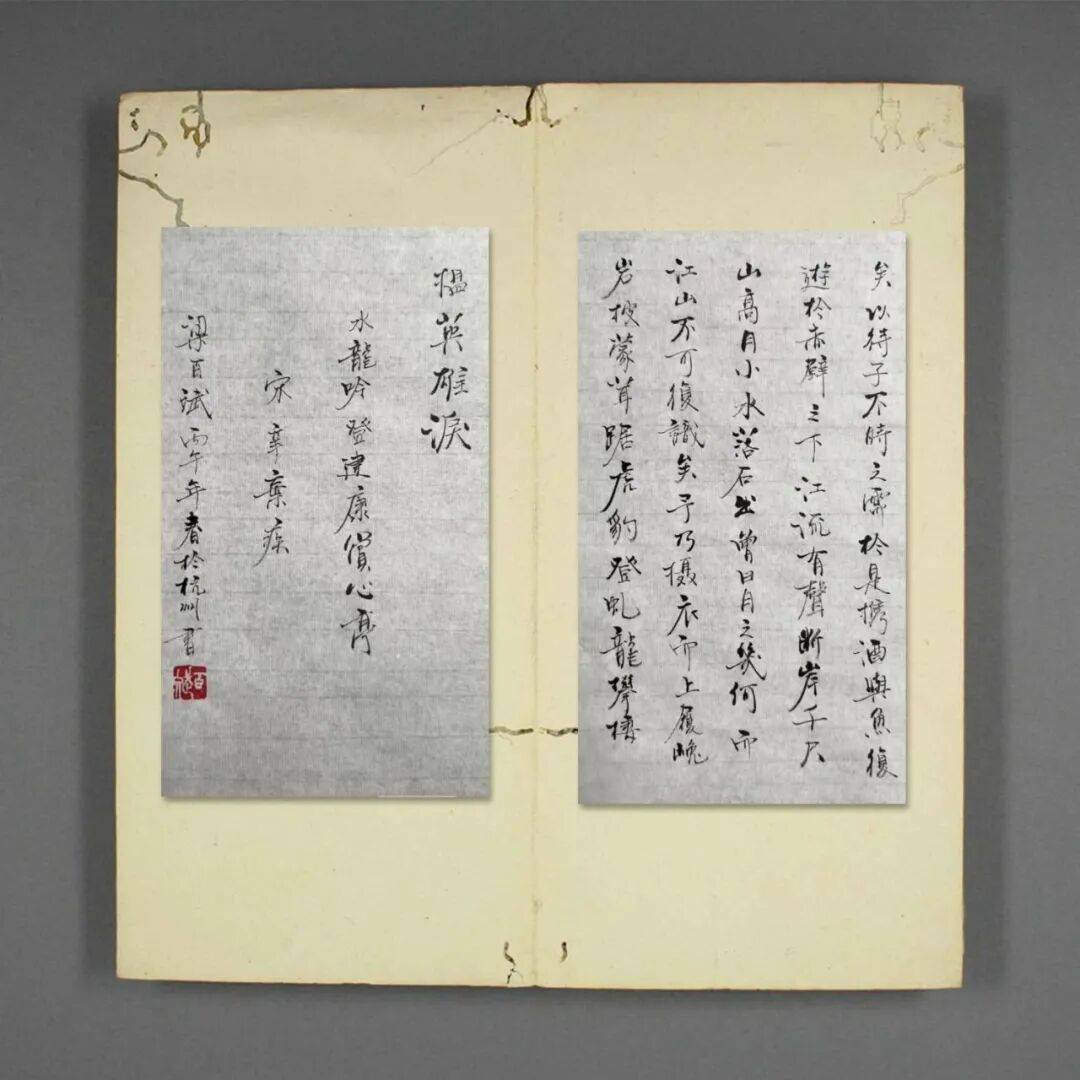 矣以待子不時之需於是携酒與魚復
遊於赤壁之下江流有聲断岸千尺
山高月小水落石出曾日月之幾何而
江山不可復識矣予乃攝衣而上履巉
岩披蒙茸踞虎豹登虬龍攀棲
揾英雄淚
水龍吟登建康賞心亭
宋辛棄疾
梁百斌丙午年春於杭州書